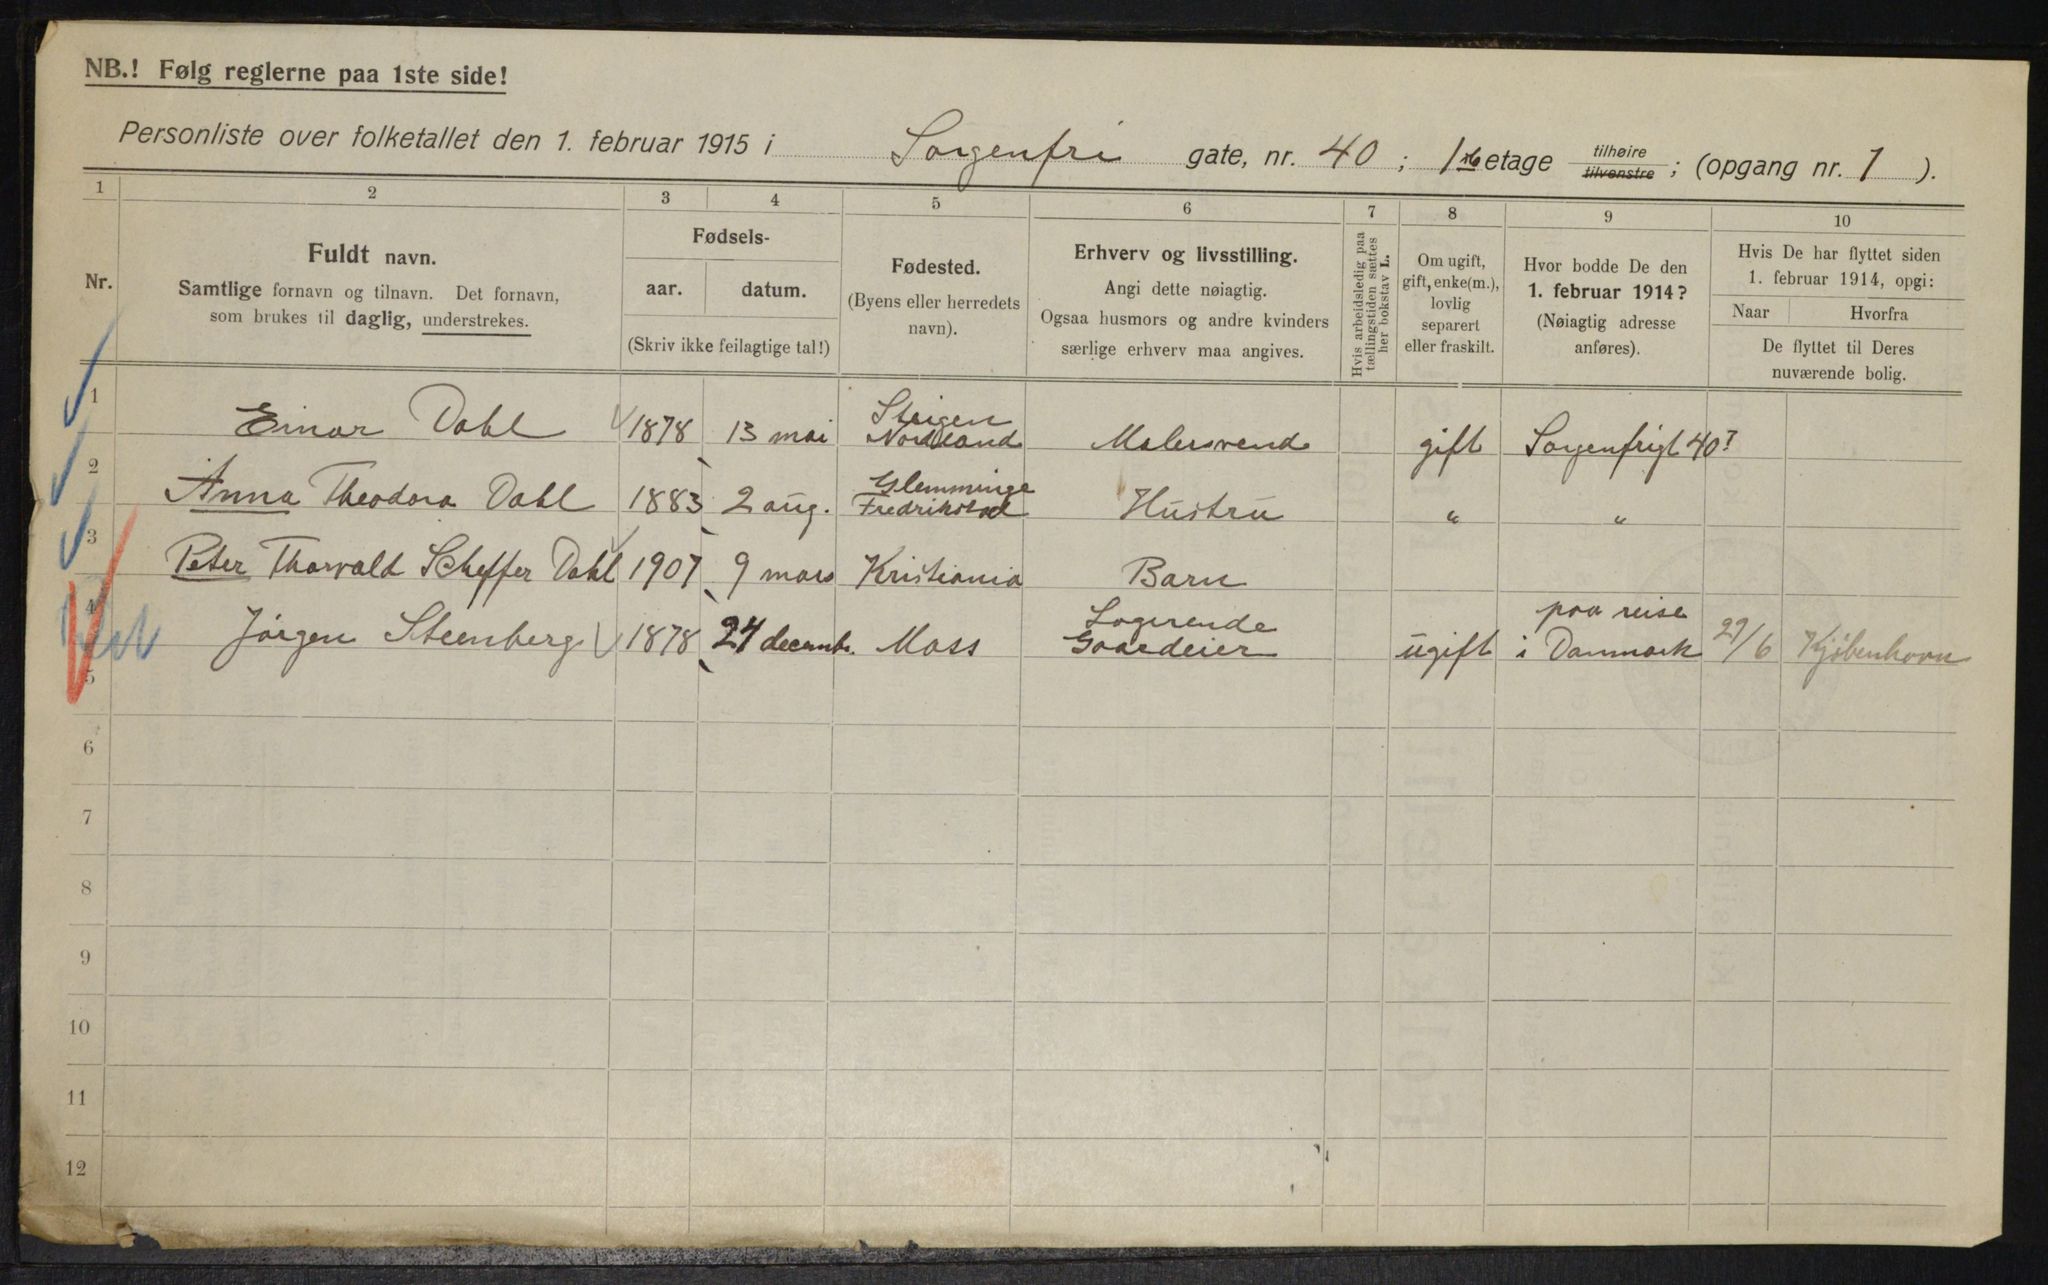 NB.! Følg reglerne paa 1ste side!
Personliste over folketallet den 1. februar 1915 i Sorgenfri gate, nr. 40 ; 1ste etage tilhøire tilvenstre ; (opgang nr. 1 ).
1 2 3 4 5 6 7 8 9 10
Nr.
Fuldt navn.
Samtlige fornavn og tilnavn. Det fornavn,
som brukes til daglig, understrekes.
Fødsels-
aar. datum.
(Skriv ikke feilagtige tal!)
Fødested.
(Byens eller herredets
navn).
Erhverv og livsstilling.
Angi dette nøiagtig.
Ogsaa husmors og andre kvinders
særlige erhverv maa angives.
Hvis arbeidsledig paa
tællingstiden sættes
her bokstav L.
Om ugift,
gift, enke(m.),
lovlig
separert
eller fraskilt.
Hvor bodde De den
1. februar 1914?
(Nøiagtig adresse
anføres).
Hvis De har flyttet siden
1. februar 1914, opgi:
Naar Hvorfra
De flyttet til Deres
nuværende bolig.
1 Einar Dahl 1878 13 mai Steigen Nordland Malersvend gift Sorgenfrigt 40?
2 Anna Theodora Dahl 1883 2 aug. Glemminge Fredrikstad Hustru " "
3 Peter Thorvald Scheffer Dahl 1907 9 mars Kristiania Barn
4 Jörgen Steenberg 1878 24 decembr. Moss Logerende Gaardeier ugift paa reise i Danmark 29/6 Kjöbenhavn
5
6
7
8
9
10
11
12